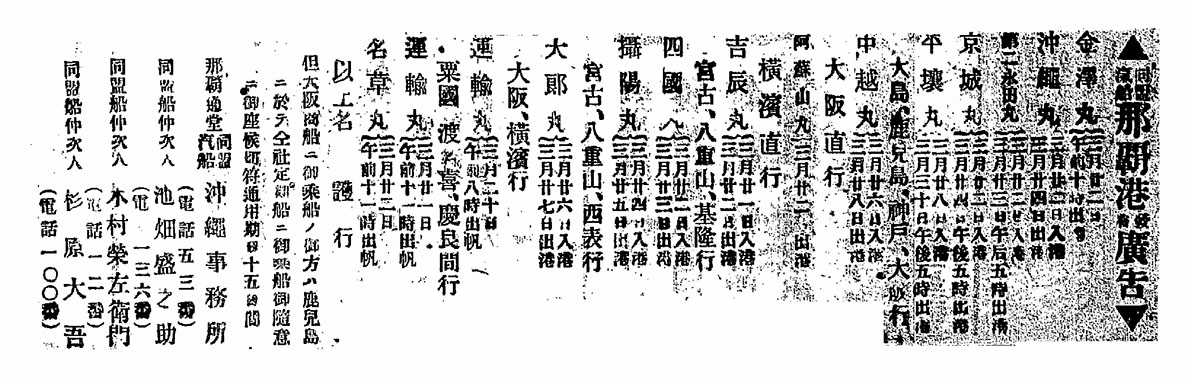 ▲同盟汽船那覇港發着廣告▼
金澤丸 三月廿二日 午前十時出港
沖繩丸 三月廿二日入港 三月廿四日出港
第二永田丸 三月廿二日入港 三月廿三日午后五時出港
京城丸 三月廿三日入港 三月廿四日午後五時出港
平壤丸 三月廿八日入港 三月三十日午後五時出港
大島、鹿兒島、神戸、大阪行
中越丸 三月廿六日入港 三月廿八日出港
大阪直行
阿蘇山丸 三月廿二 出港
橫濱直行
吉辰丸 三月廿一日入港 三月廿二日出港
宮古、八重山、基隆行
四國丸 三月廿 日入港 三月廿三日出港
攝陽丸 三月廿四日入港 三月廿五日出港
宮古、八重山、西表行
大郎丸 三月廿六日入港 三月廿七日出港
大阪、橫濱行
運輸丸 三月二十日 午前八時出帆
粟國、渡喜、慶良間行
運輸丸 三月廿一日 午前十一時出帆
名草丸 三月廿 日 午前十一時出帆
以上名護行
但大阪商船ニ御乘船ノ御方ハ鹿兒島
ニ於テ全社定期船ニ御乘船御隨意
ニ御座候切符通用期日十五日間
那覇通堂 同盟汽船 沖繩事務所
(電話五三番)
同盟船仲次人 池畑盛之助
(電 一三六番)
同盟船仲次人 木村榮左衛門
(電話一二番)
同盟船仲次人 杉原大吾
(電話一〇〇番)